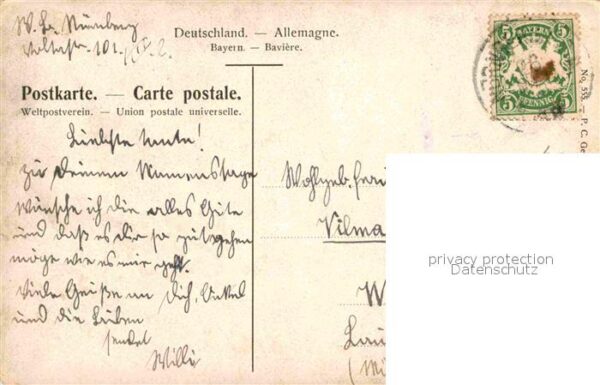 W. Gr. Nürnberg
101
Deutschland. — Allemagne.
Bayern. — Bavière.
Postkarte. — Carte postale.
Weltpostverein. — Union postale universelle.
BAYERN
5 5
5 PFENNIG 5
No. 555. — P. C. Ge
Liebste Tante!
zu Deinem Namenstage
wünsche ich dir alles Gute
und daß es dir so gut gehen
möge wie es mir geht.
Viele Grüße an Dich, Onkel
und die Lieben
sendet
Willi
Wohlgeb. Frau
Vilma
W
Lau
privacy protection
Datenschutz